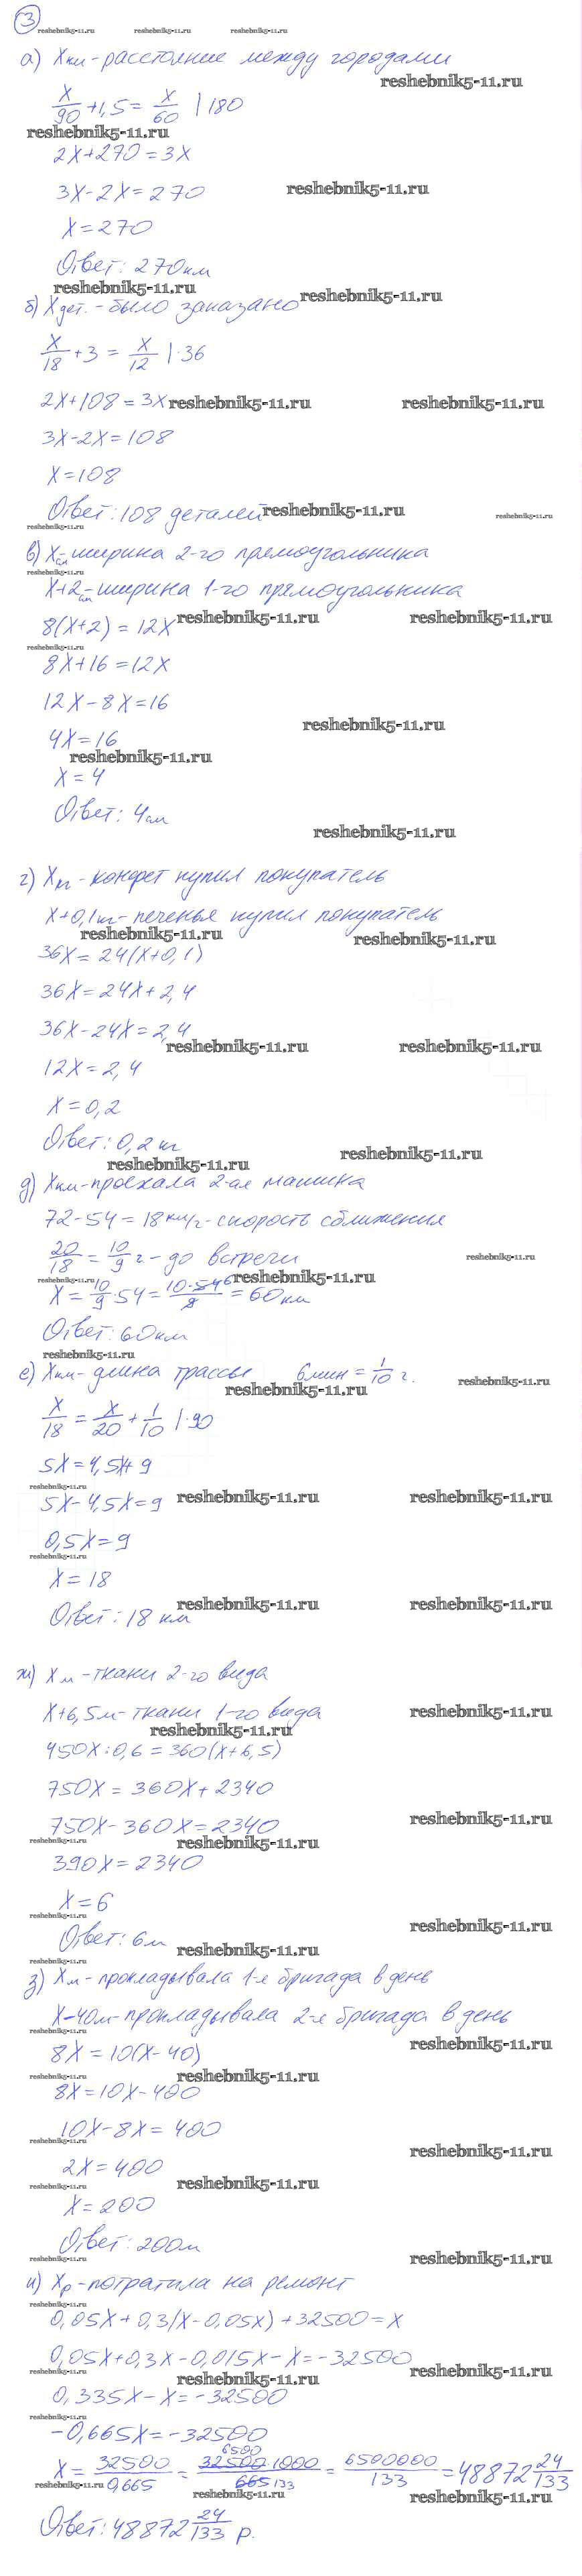 3
reshebnik5-11.ru reshebnik5-11.ru reshebnik5-11.ru
а) Xкм - расстояние между городами
reshebnik5-11.ru
X/90 + 1,5 = X/60 | 180
reshebnik5-11.ru
2X + 270 = 3X
3X - 2X = 270
reshebnik5-11.ru
X = 270
Ответ: 270км
reshebnik5-11.ru
reshebnik5-11.ru
б) Xдет. - было заказано
X/18 + 3 = X/12 | ·36
2X + 108 = 3X
reshebnik5-11.ru reshebnik5-11.ru
3X - 2X = 108
X = 108
Ответ: 108 деталей
reshebnik5-11.ru reshebnik5-11.ru
reshebnik5-11.ru
в) Xсм - ширина 2-го прямоугольника
reshebnik5-11.ru
X+2см - ширина 1-го прямоугольника
8(X+2) = 12X
reshebnik5-11.ru reshebnik5-11.ru
reshebnik5-11.ru
8X + 16 = 12X
12X - 8X = 16
reshebnik5-11.ru
4X = 16
reshebnik5-11.ru
X = 4
Ответ: 4см
reshebnik5-11.ru
г) Xкг - конфет купил покупатель
X+0,1кг - печенья купил покупатель
reshebnik5-11.ru reshebnik5-11.ru
36X = 24(X+0,1)
36X = 24X + 2,4
36X - 24X = 2,4
reshebnik5-11.ru reshebnik5-11.ru
12X = 2,4
X = 0,2
Ответ: 0,2 кг
reshebnik5-11.ru
reshebnik5-11.ru
д) Xкм - проехала 2-ая машина
72 - 54 = 18км/г - скорость сближения
20/18 = 10/9 г - до встречи
reshebnik5-11.ru
reshebnik5-11.ru reshebnik5-11.ru
X = 10/9 · 54 = 10·54 6/9 = 60км
Ответ: 60км
reshebnik5-11.ru
е) Xкм - длина трассы 6мин = 1/10 г.
reshebnik5-11.ru reshebnik5-11.ru
X/18 = X/20 + 1/10 | ·90
5X = 4,5X + 9
reshebnik5-11.ru
5X - 4,5X = 9
reshebnik5-11.ru reshebnik5-11.ru
0,5X = 9
reshebnik5-11.ru
X = 18
reshebnik5-11.ru reshebnik5-11.ru
Ответ: 18 км
ж) Xм - ткани 2-го вида
X+6,5м - ткани 1-го вида
reshebnik5-11.ru
reshebnik5-11.ru
450X : 0,6 = 360(X+6,5)
750X = 360X + 2340
750X - 360X = 2340
reshebnik5-11.ru
reshebnik5-11.ru reshebnik5-11.ru
390X = 2340
X = 6
reshebnik5-11.ru
reshebnik5-11.ru
Ответ: 6м
reshebnik5-11.ru
reshebnik5-11.ru
з) Xм - прокладывала 1-е бригада в день
X-40м - прокладывала 2-е бригада в день
reshebnik5-11.ru
reshebnik5-11.ru
8X = 10(X-40)
reshebnik5-11.ru reshebnik5-11.ru
8X = 10X - 400
10X - 8X = 400
reshebnik5-11.ru
reshebnik5-11.ru
2X = 400
reshebnik5-11.ru reshebnik5-11.ru
X = 200
Ответ: 200м
reshebnik5-11.ru reshebnik5-11.ru
и) Xр - потратила на ремонт
reshebnik5-11.ru
0,05X + 0,3(X - 0,05X) + 32500 = X
0,05X + 0,3X - 0,015X - X = -32500
reshebnik5-11.ru reshebnik5-11.ru reshebnik5-11.ru
0,335X - X = -32500
reshebnik5-11.ru
-0,665X = -32500
X = 32500/0,665 = 6500 32500·1000/665 133 = 6500000/133 = 48872 24/133
reshebnik5-11.ru reshebnik5-11.ru reshebnik5-11.ru
Ответ: 48872 24/133 р.